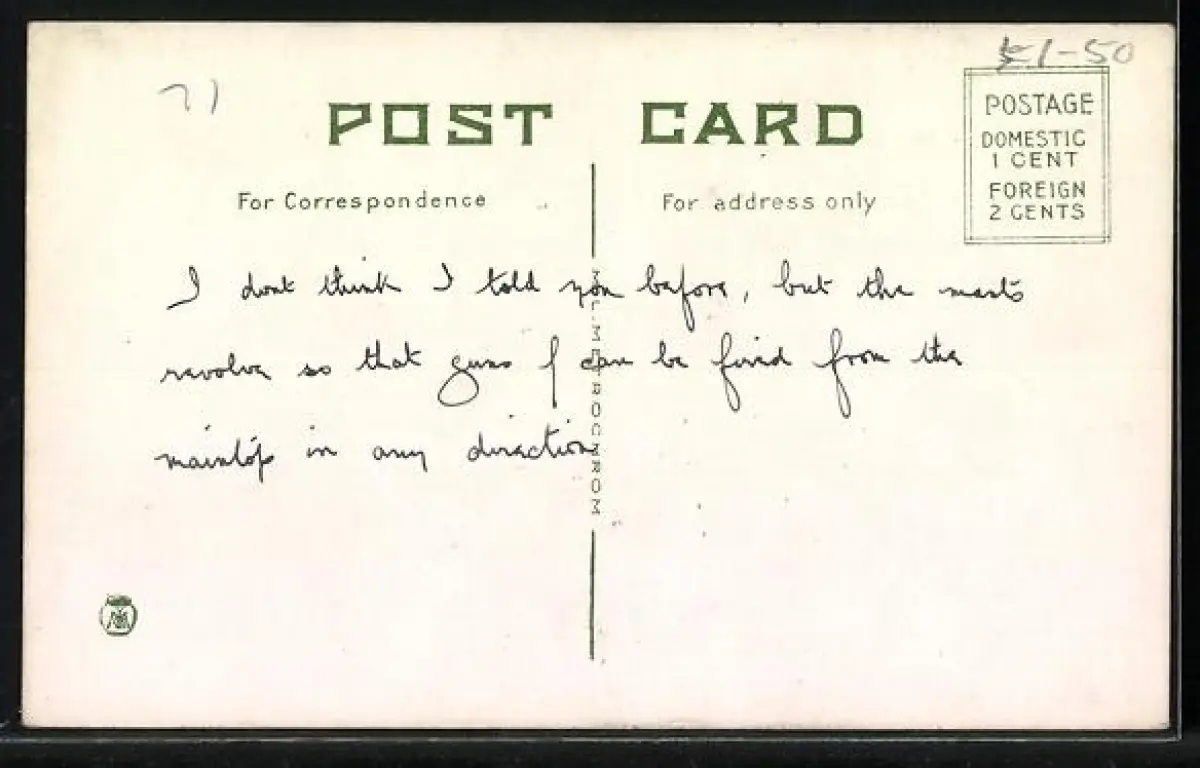 71
£1-50
POST CARD
POSTAGE
DOMESTIC
1 CENT
FOREIGN
2 CENTS
For Correspondence
For address only
I dont think I told you before, but the masts
revolve so that guns can be fired from the
maintop in any direction
METROCHROM